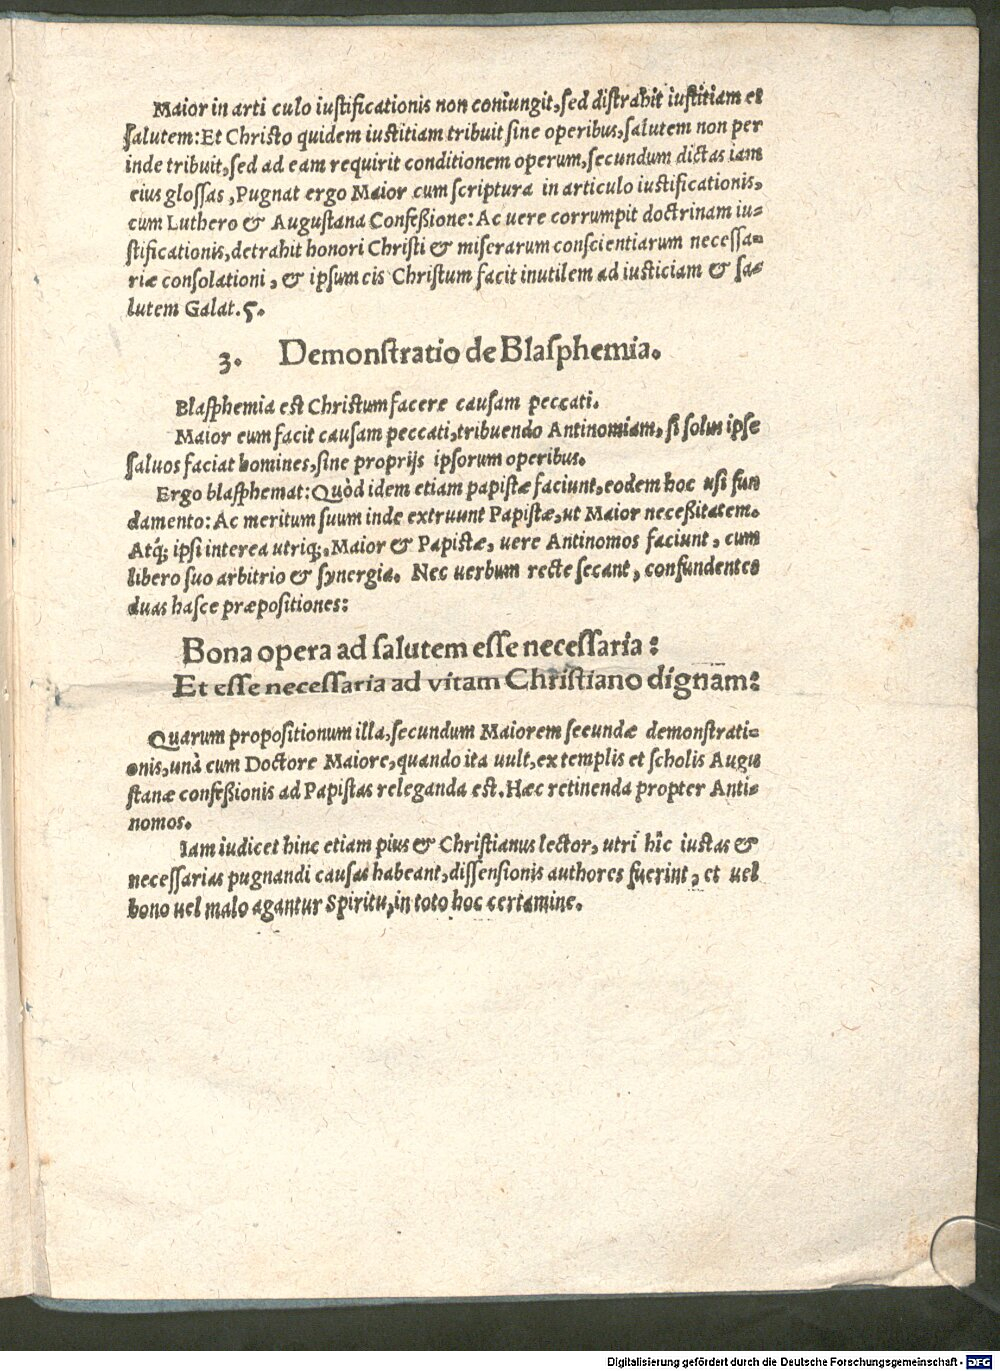 Maior in arti culo iustificationis non coniungit, sed distrahit iustitiam et
salutem: Et Christo quidem iustitiam tribuit sine operibus, salutem non per
inde tribuit, sed ad eam requirit conditionem operum, secundum dictas iam
eius glossas, Pugnat ergo Maior cum scriptura in articulo iustificationis,
cum Luthero & Augustana Confeßione: Ac uere corrumpit doctrinam iu=
stificationis, detrahit honori Christi & miserarum conscientiarum necessa=
riæ consolationi, & ipsum eis Christum facit inutilem ad iusticiam & sa=
lutem Galat. 5.
3. Demonstratio de Blasphemia.
Blasphemia est Christum facere causam peccati.
Maior eum facit causam peccati, tribuendo Antinomiam, si solus ipse
saluos faciat homines, sine proprijs ipsorum operibus.
Ergo blasphemat: Quòd idem etiam papistæ faciunt, eodem hoc usi fun
damento: Ac meritum suum inde extruunt Papistæ, ut Maior neceßitatem.
Atq́; ipsi interea utriq;, Maior & Papistæ, uere Antinomos faciunt, cum
libero suo arbitrio & synergia. Nec uerbum recte secant, confundentes
duas hasce præpositiones:
Bona opera ad salutem esse necessaria:
Et esse necessaria ad vitam Christiano dignam:
Quarum propositionum illa, secundum Maiorem secundæ demonstrati=
onis, unà cum Doctore Maiore, quando ita uult, ex templis et scholis Augu
stanæ confeßionis ad Papistas releganda est. Hæc retinenda propter Anti=
nomos.
Iam iudicet hinc etiam pius & Christianus lector, utri hîc iustas &
necessarias pugnandi causas habeant, dissensionis authores fuerint, et uel
bono uel malo agantur Spiritu, in toto hoc certamine.
Digitalisierung gefördert durch die Deutsche Forschungsgemeinschaft - DFG